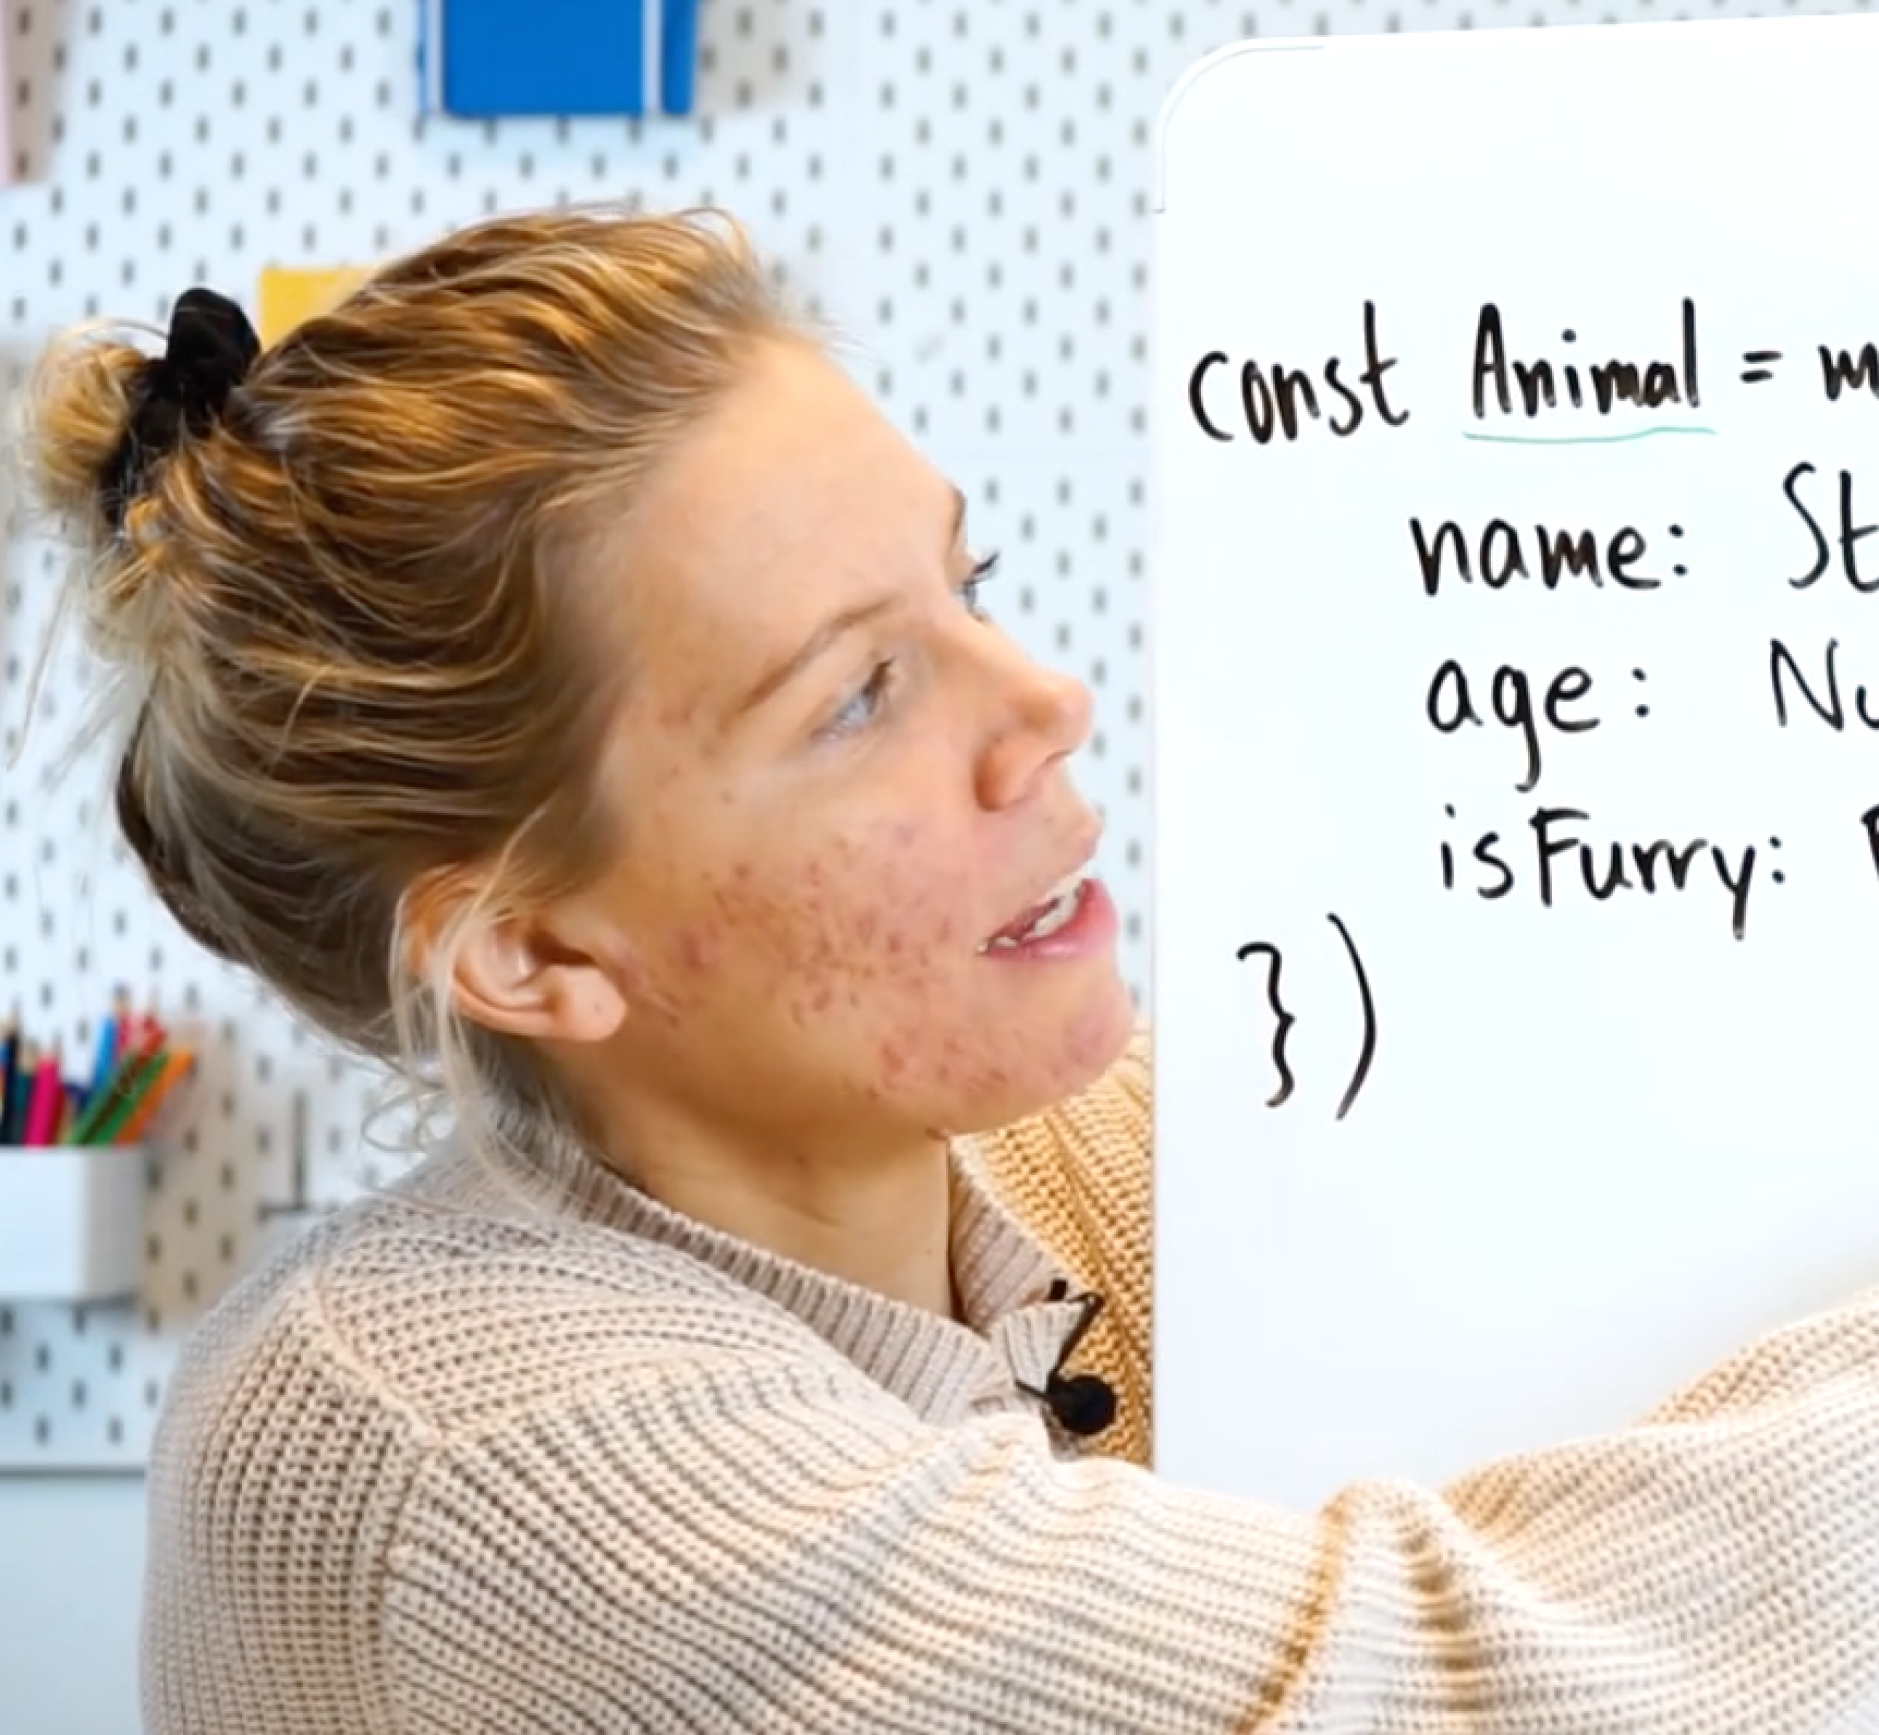 const Animal = m
name: St
age: Nu
isFurry:
})